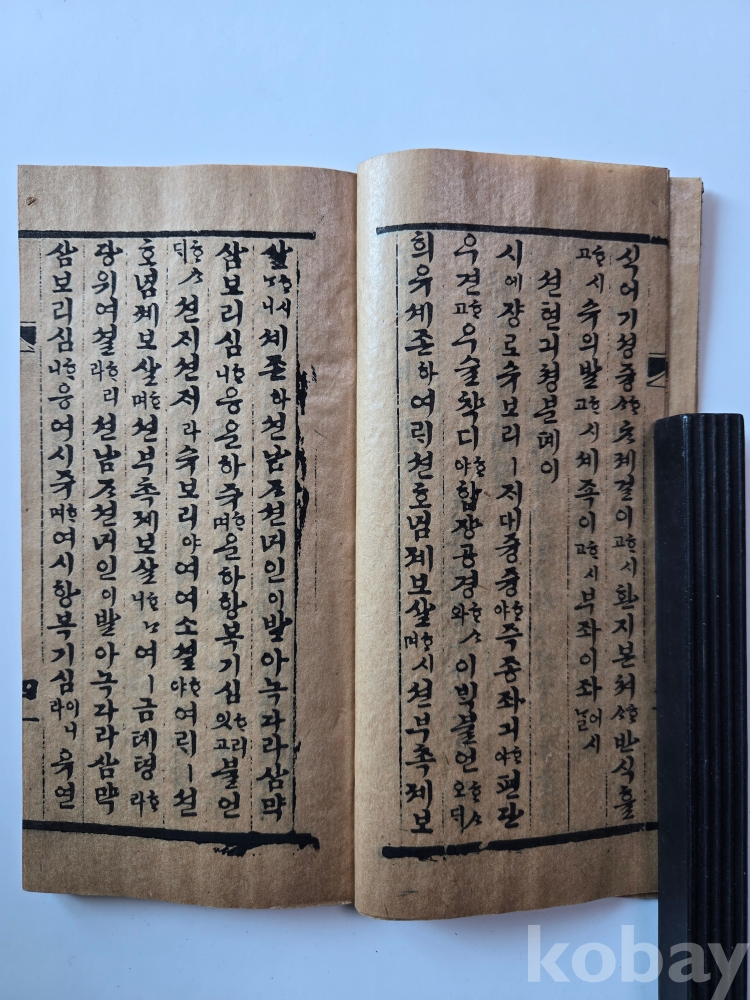 식어기셩즁ᄒᆞ샤ᄎᆞ졔걸이ᄒᆞ시고환지본쳐ᄒᆞ샤반식흘
ᄒᆞ시고슈의발ᄒᆞ시고셰족이ᄒᆞ시고부좌이좌어시날
션현긔쳥분뎨이
시에쟝로슈보리ㅣ저대즁즁ᄒᆞ야즉종좌긔ᄒᆞ야편단
우견ᄒᆞ고우슬착디ᄒᆞ야합쟝공경ᄒᆞᄉᆞ와이빅불언ᄒᆞᄉᆞ오ᄃᆡ
희유셰존하여ᄅᆡ션호념졔보살ᄒᆞ시며션부촉졔보
살ᄒᆞ시ᄂᆞ니셰존하션남ᄌᆞ션녀인이발아녹다라삼먁
삼보리심ᄒᆞ니응운하쥬ᄒᆞ며운하항복기심ᄒᆞ리잇고불언
ᄒᆞᄉᆞᄃᆡ션지션저라슈보리야여여소셜ᄒᆞ야여ᄅᆡㅣ션
호념졔보살ᄒᆞ며션부촉졔보살ᄒᆞᄂᆞ니여ㅣ금뎨텽ᄒᆞ라
당위여셜ᄒᆞ리라션남ᄌᆞ션녀인이발아녹다라삼먁
삼보리심ᄒᆞ니응여시쥬ᄒᆞ며여시항복기심이니라유연
kobay